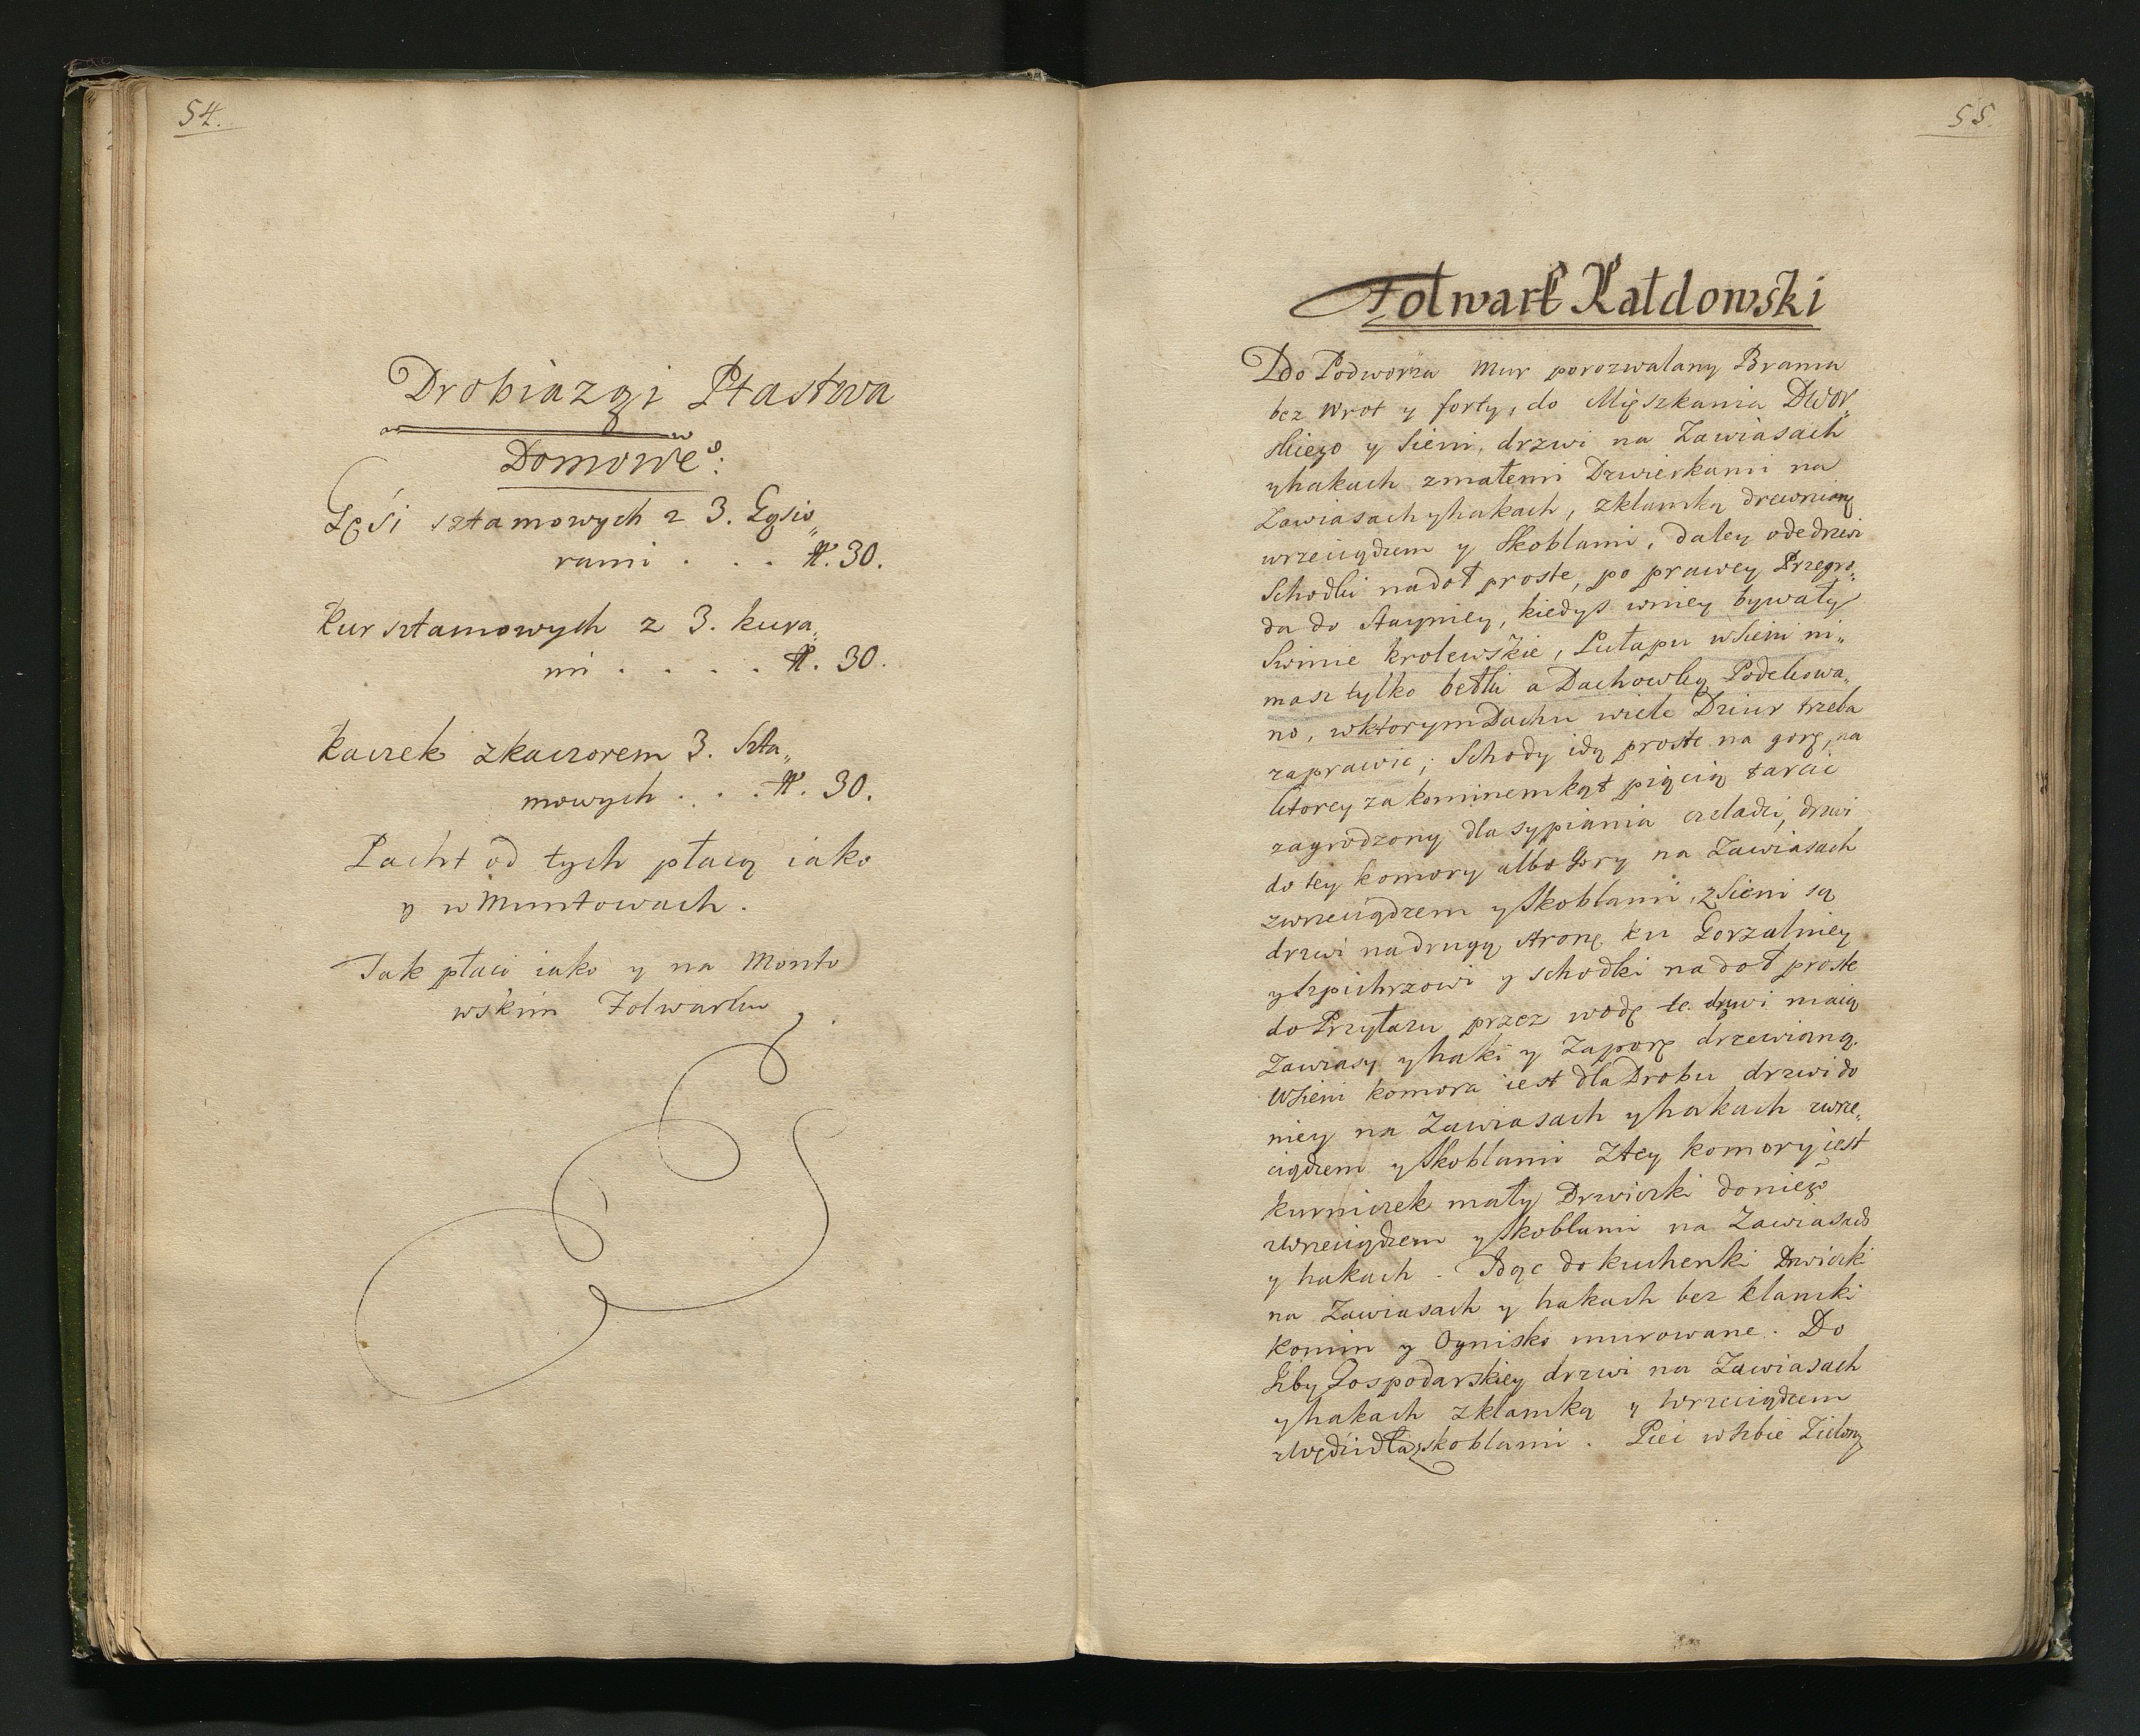 54.
Drobiazgi Ptastwa
Domowe⁰:
Gęśi sztamowych z 3. Gąsio„
rami . . . №. 30.
Kur sztamowych z 3. kura„
mi . . . . . №. 30.
Kaczek zkaczorem 3. Szta„
mowych . . . №. 30.
Pacht od tych płacą iako
y w Muntowach.
Tak płaci iako y na Monto
wskim Folwarku.
55.
Folwark Kałdowski
Do Podworza Mur porozwalany Brama
bez wrot y forty, do Mięszkania Dwor„
skiego y Sieni, drzwi na Zawiasach
y hakach zmałemi Drzwiczkami na
Zawiasach y hakach, zklamką drewnianą
wrzeciądzem y Skoblami, daley ode drzwi
Schodki nadoł proste, po prawey Przegro„
da do Stayniey, kiedyś wniey bywały
Swinie krolewskie, Pułapu wSieni ni„
masz tylko bełki a Dachowką Podchowa„
no, wktorym Dachu wiele Dziur trzeba
zaprawić; Schody idą proste na gorę, na
ktorey za kominem kąt pięcią tarcic
zagrodzony dla sypiania czeladzi, drzwi
do tey komory albo Gory na Zawiasach
zwrzeciądzem y Skoblami, z Sieni są
drzwi nadrugą stronę ku Gorzalniey
y Szpichrzowi y schodki nadoł proste
do Przyłazu przez wodę te drzwi maią
Zawiasy y haki y Zaporę drzewianą.
WSieni komora iest dla Drobu drzwi do
niey na Zawiasach y hakach zwrze„
ciądzem y Skoblami Ztey komory iest
kurniczek mały Drzwiczki doniego
zWrzeciądzem y Skoblami na Zawiasach
y hakach. Idąc do kuchenki Drzwiczki
na Zawiasach y hakach bez klamki
komin y Ognisko murowane. Do
Izby Gospodarskiey drzwi na Zawiasach
y hakach zklamką y Wrzeciądzem
skoblami. Piec wIzbie Zielony